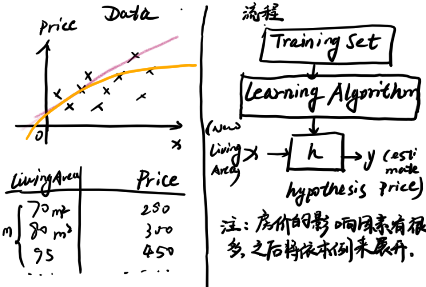 Data
Price
0
x
Living Area
Price
m
70 m²
280
80 m²
300
95
450
流程
Training Set
Learning Algorithm
(New Living Area)
x
h
y (estimate price)
hypothesis
注：房价的影响因素有很
多，之后将依本例来展开.